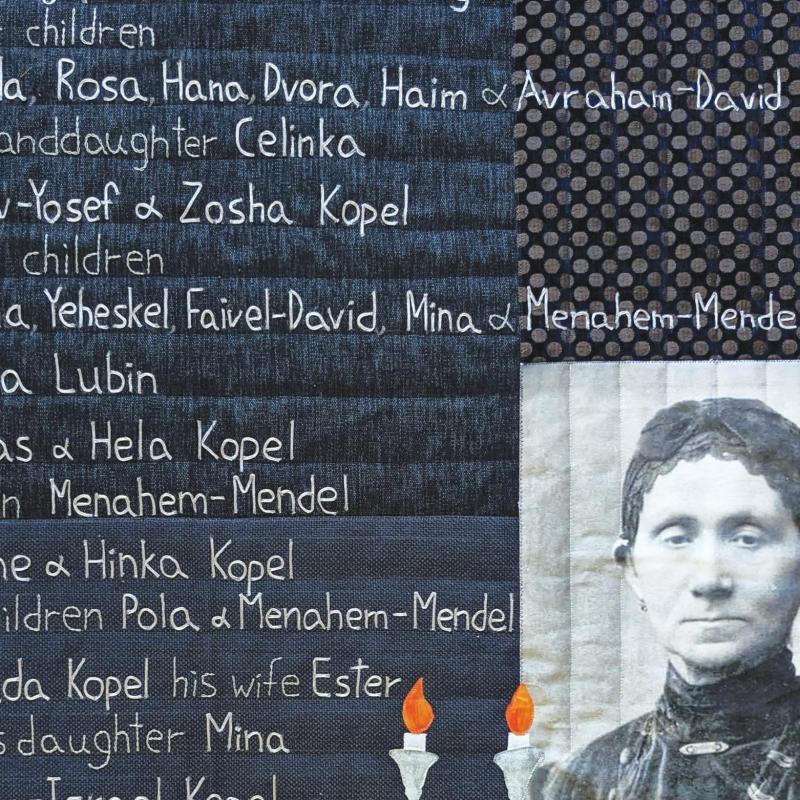 children
Rosa, Hana, Dvora, Haim & Avraham-David
Celinka
-Yosef & Zosha Kopel
children
Yeheskel, Faivel-David, Mina & Menahem-Mende
Lubin
& Hela Kopel
Menahem-Mendel
& Hinka Kopel
ildren Pola & Menahem-Mendel
da Kopel his wife Ester
daughter Mina